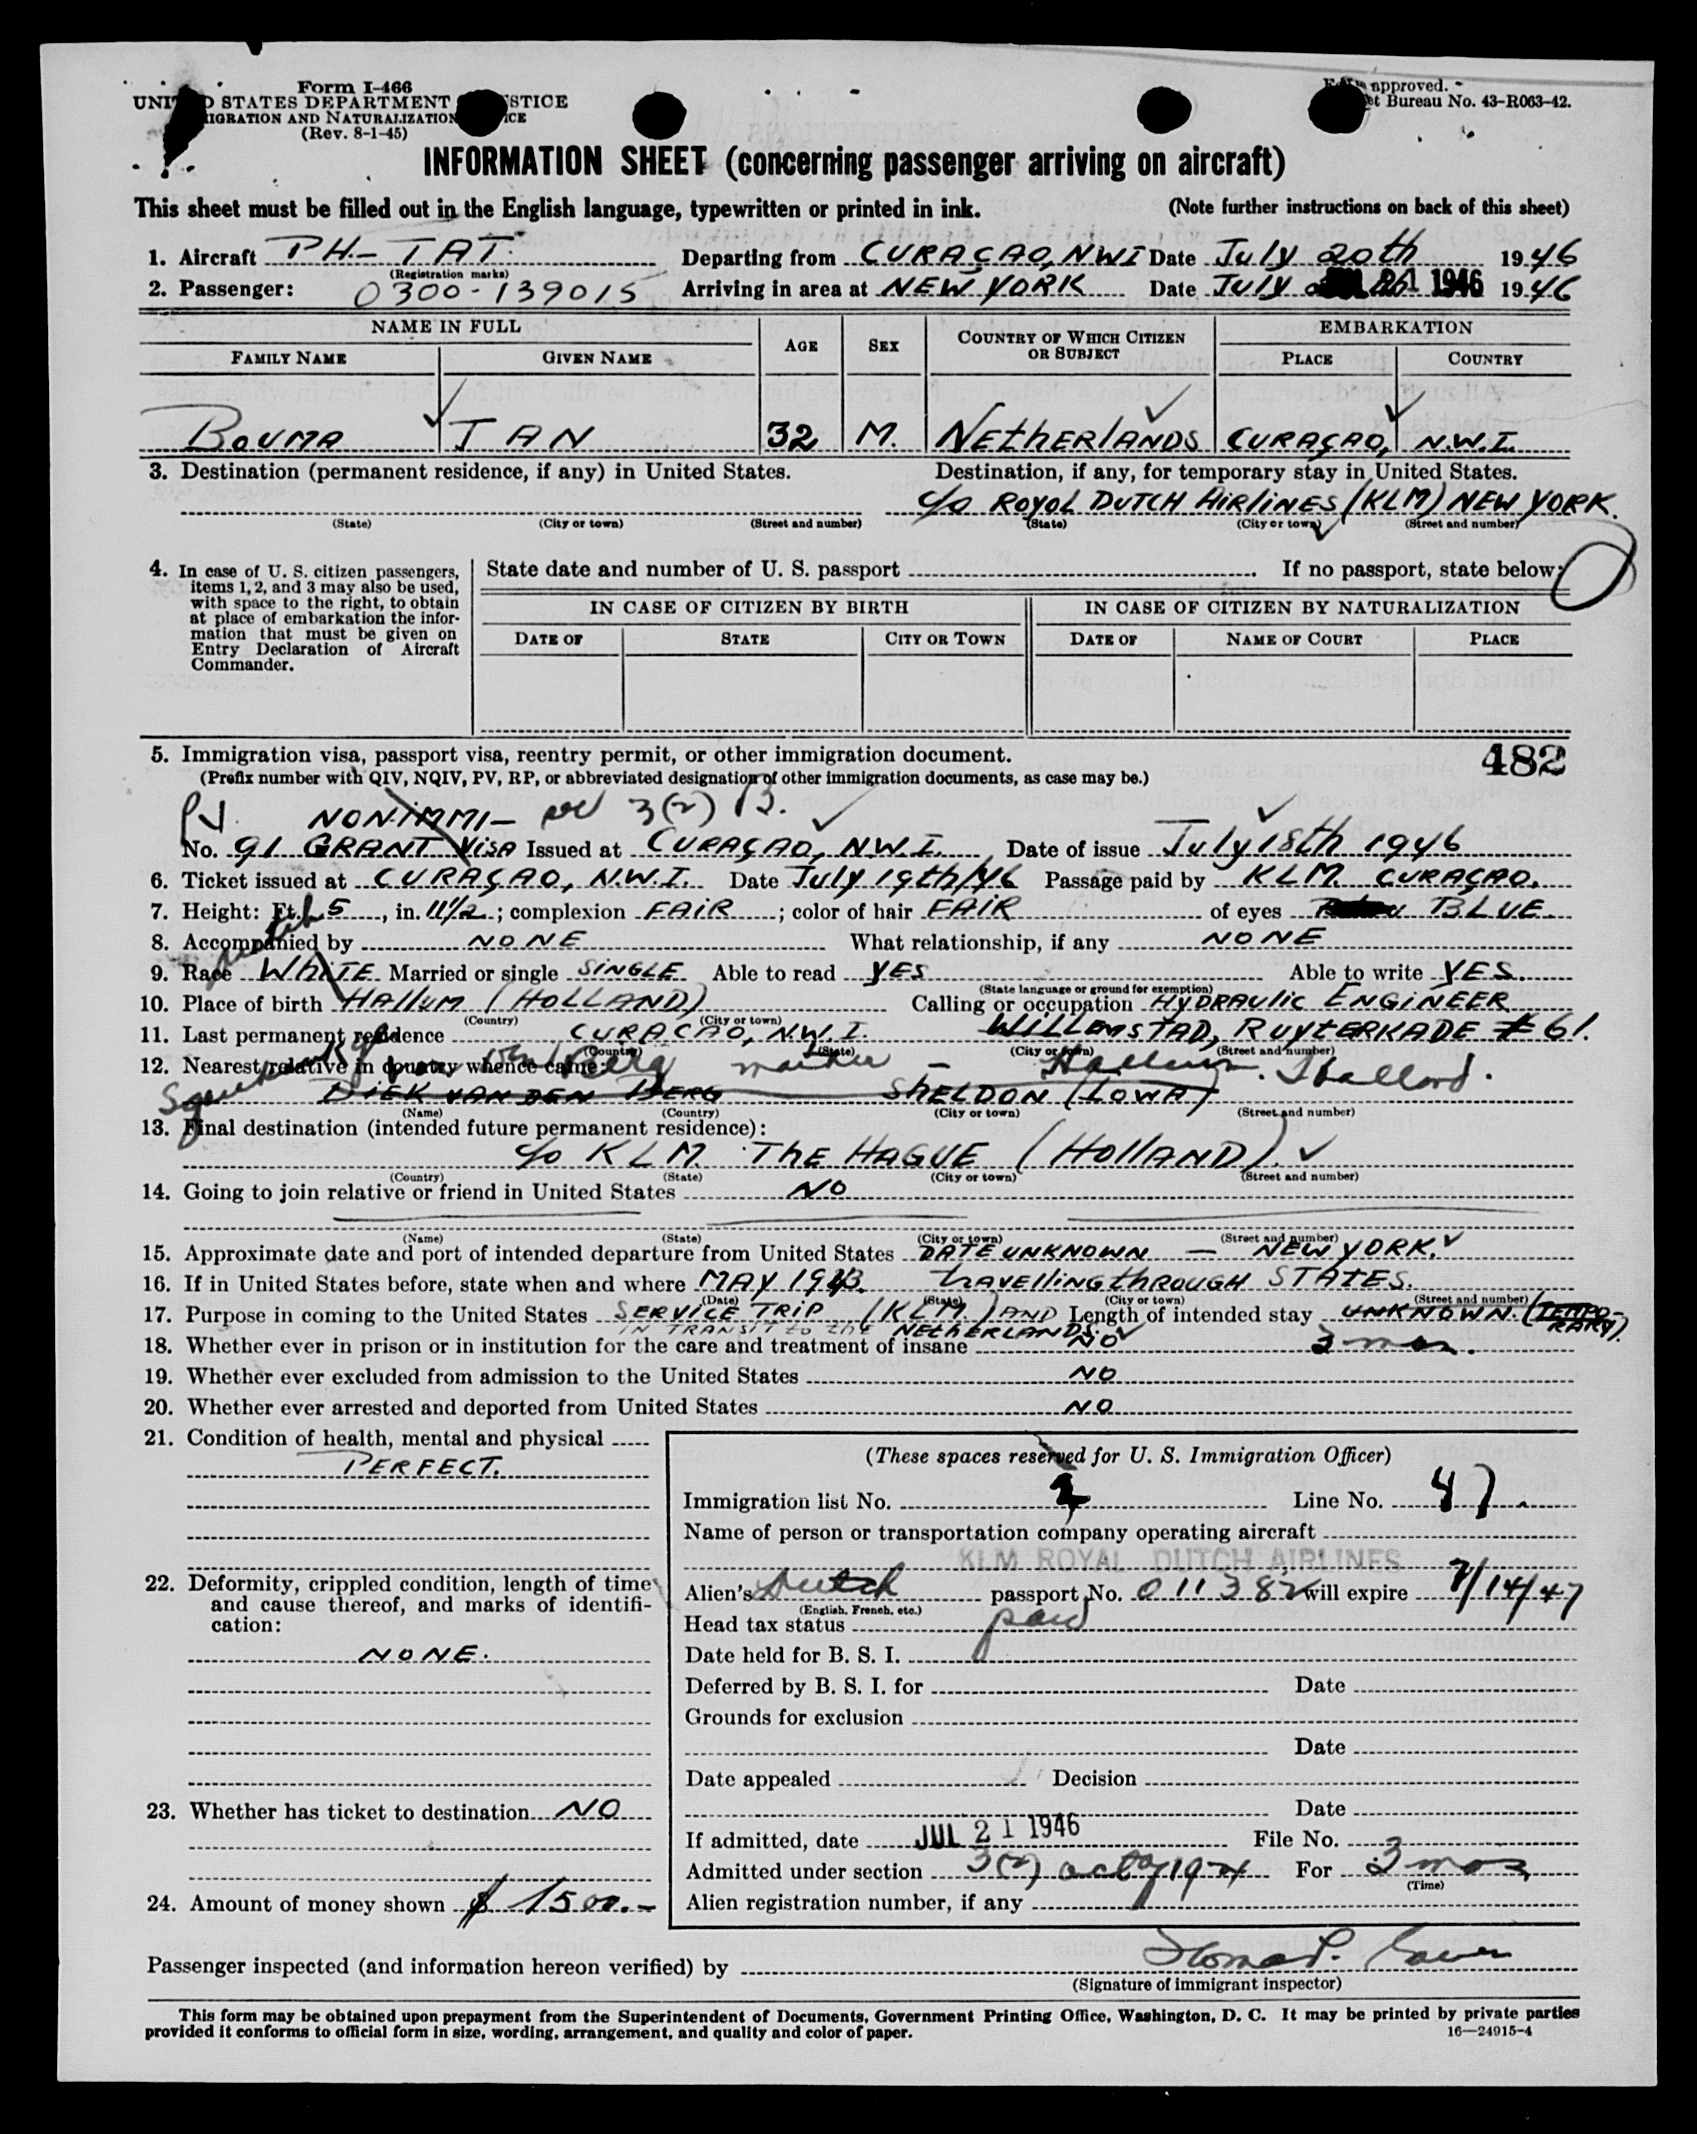 Form I-466
UNITED STATES DEPARTMENT OF JUSTICE
IMMIGRATION AND NATURALIZATION SERVICE
(Rev. 8-1-45)
Form approved.
Budget Bureau No. 43-R063-42.
INFORMATION SHEET (concerning passenger arriving on aircraft)
This sheet must be filled out in the English language, typewritten or printed in ink.
(Note further instructions on back of this sheet)
1. Aircraft PH-TAT. Departing from CURAÇAO, NWI Date July 20th 1946
(Registration marks)
2. Passenger: 0300-139015 Arriving in area at NEW YORK Date July 21 1946 1946
NAME IN FULL AGE SEX COUNTRY OF WHICH CITIZEN OR SUBJECT EMBARKATION
FAMILY NAME GIVEN NAME PLACE COUNTRY
BOUMA JAN 32 M. NETHERLANDS CURAÇAO, N.W.I.
3. Destination (permanent residence, if any) in United States. Destination, if any, for temporary stay in United States.
c/o ROYOL DUTCH AIRLINES (KLM) NEW YORK.
(State) (City or town) (Street and number) (State) (City or town) (Street and number)
4. In case of U. S. citizen passengers, items 1, 2, and 3 may also be used, with space to the right, to obtain at place of embarkation the information that must be given on Entry Declaration of Aircraft Commander.
State date and number of U. S. passport If no passport, state below:
IN CASE OF CITIZEN BY BIRTH IN CASE OF CITIZEN BY NATURALIZATION
DATE OF STATE CITY OR TOWN DATE OF NAME OF COURT PLACE
5. Immigration visa, passport visa, reentry permit, or other immigration document. 482
(Prefix number with QIV, NQIV, PV, RP, or abbreviated designation of other immigration documents, as case may be.)
PV NONIMMI- 3(2) B.
No. 91 GRANT VISA Issued at CURAÇAO, N.W.I. Date of issue July 18th 1946
6. Ticket issued at CURAÇAO, N.W.I. Date July 19th/46 Passage paid by KLM. CURAÇAO.
7. Height: Ft. 5, in. 11½; complexion FAIR; color of hair FAIR of eyes BLUE.
8. Accompanied by NONE What relationship, if any NONE
9. Race WHITE Married or single SINGLE Able to read YES Able to write YES.
(State language or ground for exemption)
10. Place of birth HALLUM (HOLLAND) Calling or occupation HYDRAULIC ENGINEER
(Country) (City or town)
11. Last permanent residence CURACAO, N.W.I. WILLEMSTAD, RUYTERKADE # 61.
(Country) (State) (City or town) (Street and number)
12. Nearest relative in country whence came: mother - Hallum. Holland.
DIEK VAN DEN BERG SHELDON (IOWA)
(Name) (Country) (City or town) (Street and number)
13. Final destination (intended future permanent residence):
c/o KLM. THE HAGUE (HOLLAND).
(Country) (State) (City or town) (Street and number)
14. Going to join relative or friend in United States NO
(Name) (State) (City or town) (Street and number)
15. Approximate date and port of intended departure from United States DATE UNKNOWN - NEW YORK.
16. If in United States before, state when and where MAY 1943. TRAVELLING THROUGH STATES.
(Date) (State) (City or town) (Street and number)
17. Purpose in coming to the United States SERVICE TRIP (KLM) AND Length of intended stay UNKNOWN. (TEMPORARY).
IN TRANSIT to the NETHERLANDS.
18. Whether ever in prison or in institution for the care and treatment of insane NO 3 mos.
19. Whether ever excluded from admission to the United States NO
20. Whether ever arrested and deported from United States NO
21. Condition of health, mental and physical
PERFECT.
22. Deformity, crippled condition, length of time and cause thereof, and marks of identification:
NONE.
23. Whether has ticket to destination NO
24. Amount of money shown $ 1500.-
(These spaces reserved for U. S. Immigration Officer)
Immigration list No. 2 Line No. 47.
Name of person or transportation company operating aircraft
KLM ROYAL DUTCH AIRLINES
Alien's Dutch passport No. 011382 will expire 7/14/47
(English, French, etc.)
Head tax status paid
Date held for B. S. I.
Deferred by B. S. I. for Date
Grounds for exclusion
Date
Date appealed Decision
Date
If admitted, date JUL 21 1946 File No.
Admitted under section 3(2) act of 1924 For 3 mos
(Time)
Alien registration number, if any
Passenger inspected (and information hereon verified) by
(Signature of immigrant inspector)
This form may be obtained upon prepayment from the Superintendent of Documents, Government Printing Office, Washington, D. C. It may be printed by private parties
provided it conforms to official form in size, wording, arrangement, and quality and color of paper.
16—24915-4